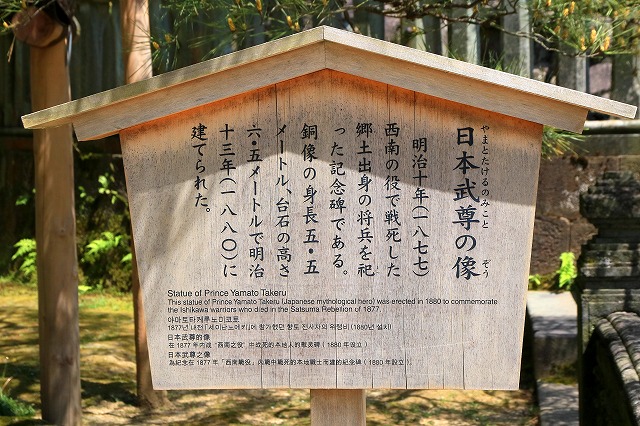 やまとたけるのみこと ぞう
日本武尊の像
明治十年(一八七七)
西南の役で戦死した
郷土出身の将兵を祀
った記念碑である。
銅像の身長五・五
メートル、台石の高さ
六・五メートルで明治
十三年(一八八〇)に
建てられた。
Statue of Prince Yamato Takeru
This statue of Prince Yamato Takeru (Japanese mythological hero) was erected in 1880 to commemorate
the Ishikawa warriors who died in the Satsuma Rebellion of 1877.
야마토타케루노미코토
1877년 내전「세이난노에키」에 참가했던 향토 전사자의 위령비(1880년 설치)
日本武尊的像
在 1877 年内战「西南之役」中战死的本地人的慰灵碑（1880 年设立）
日本武尊之像
為紀念在 1877 年「西南戰役」內戰中戰死的本地戰士而建的紀念碑（1880 年設立）。